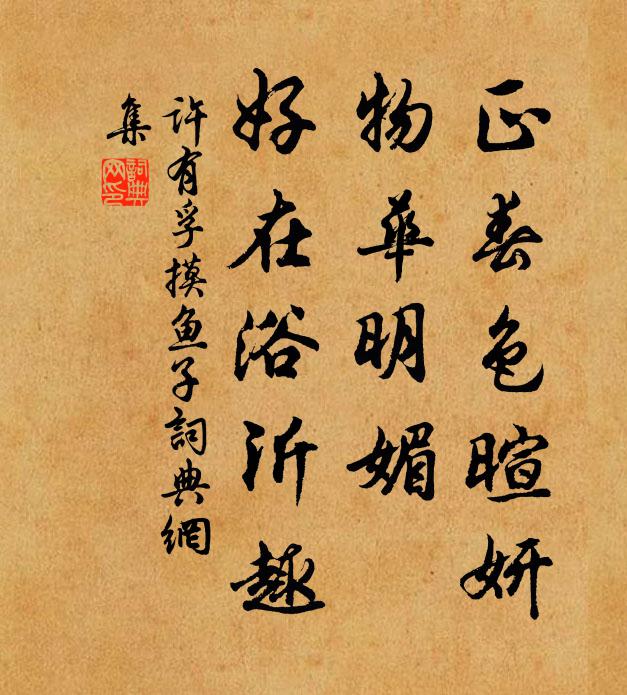 正春色暄妍
物華明媚
好在浴沂趣
许有孚摸鱼子詞典網
集
詞典网印